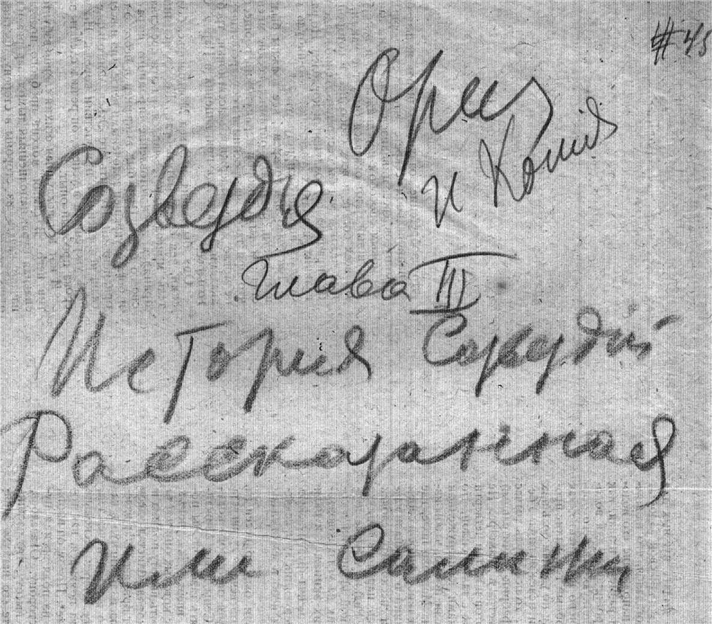 #45
Ориг
и Копия
Созвездия
глава III
История Созвездий
Рассказанная
ими Самими